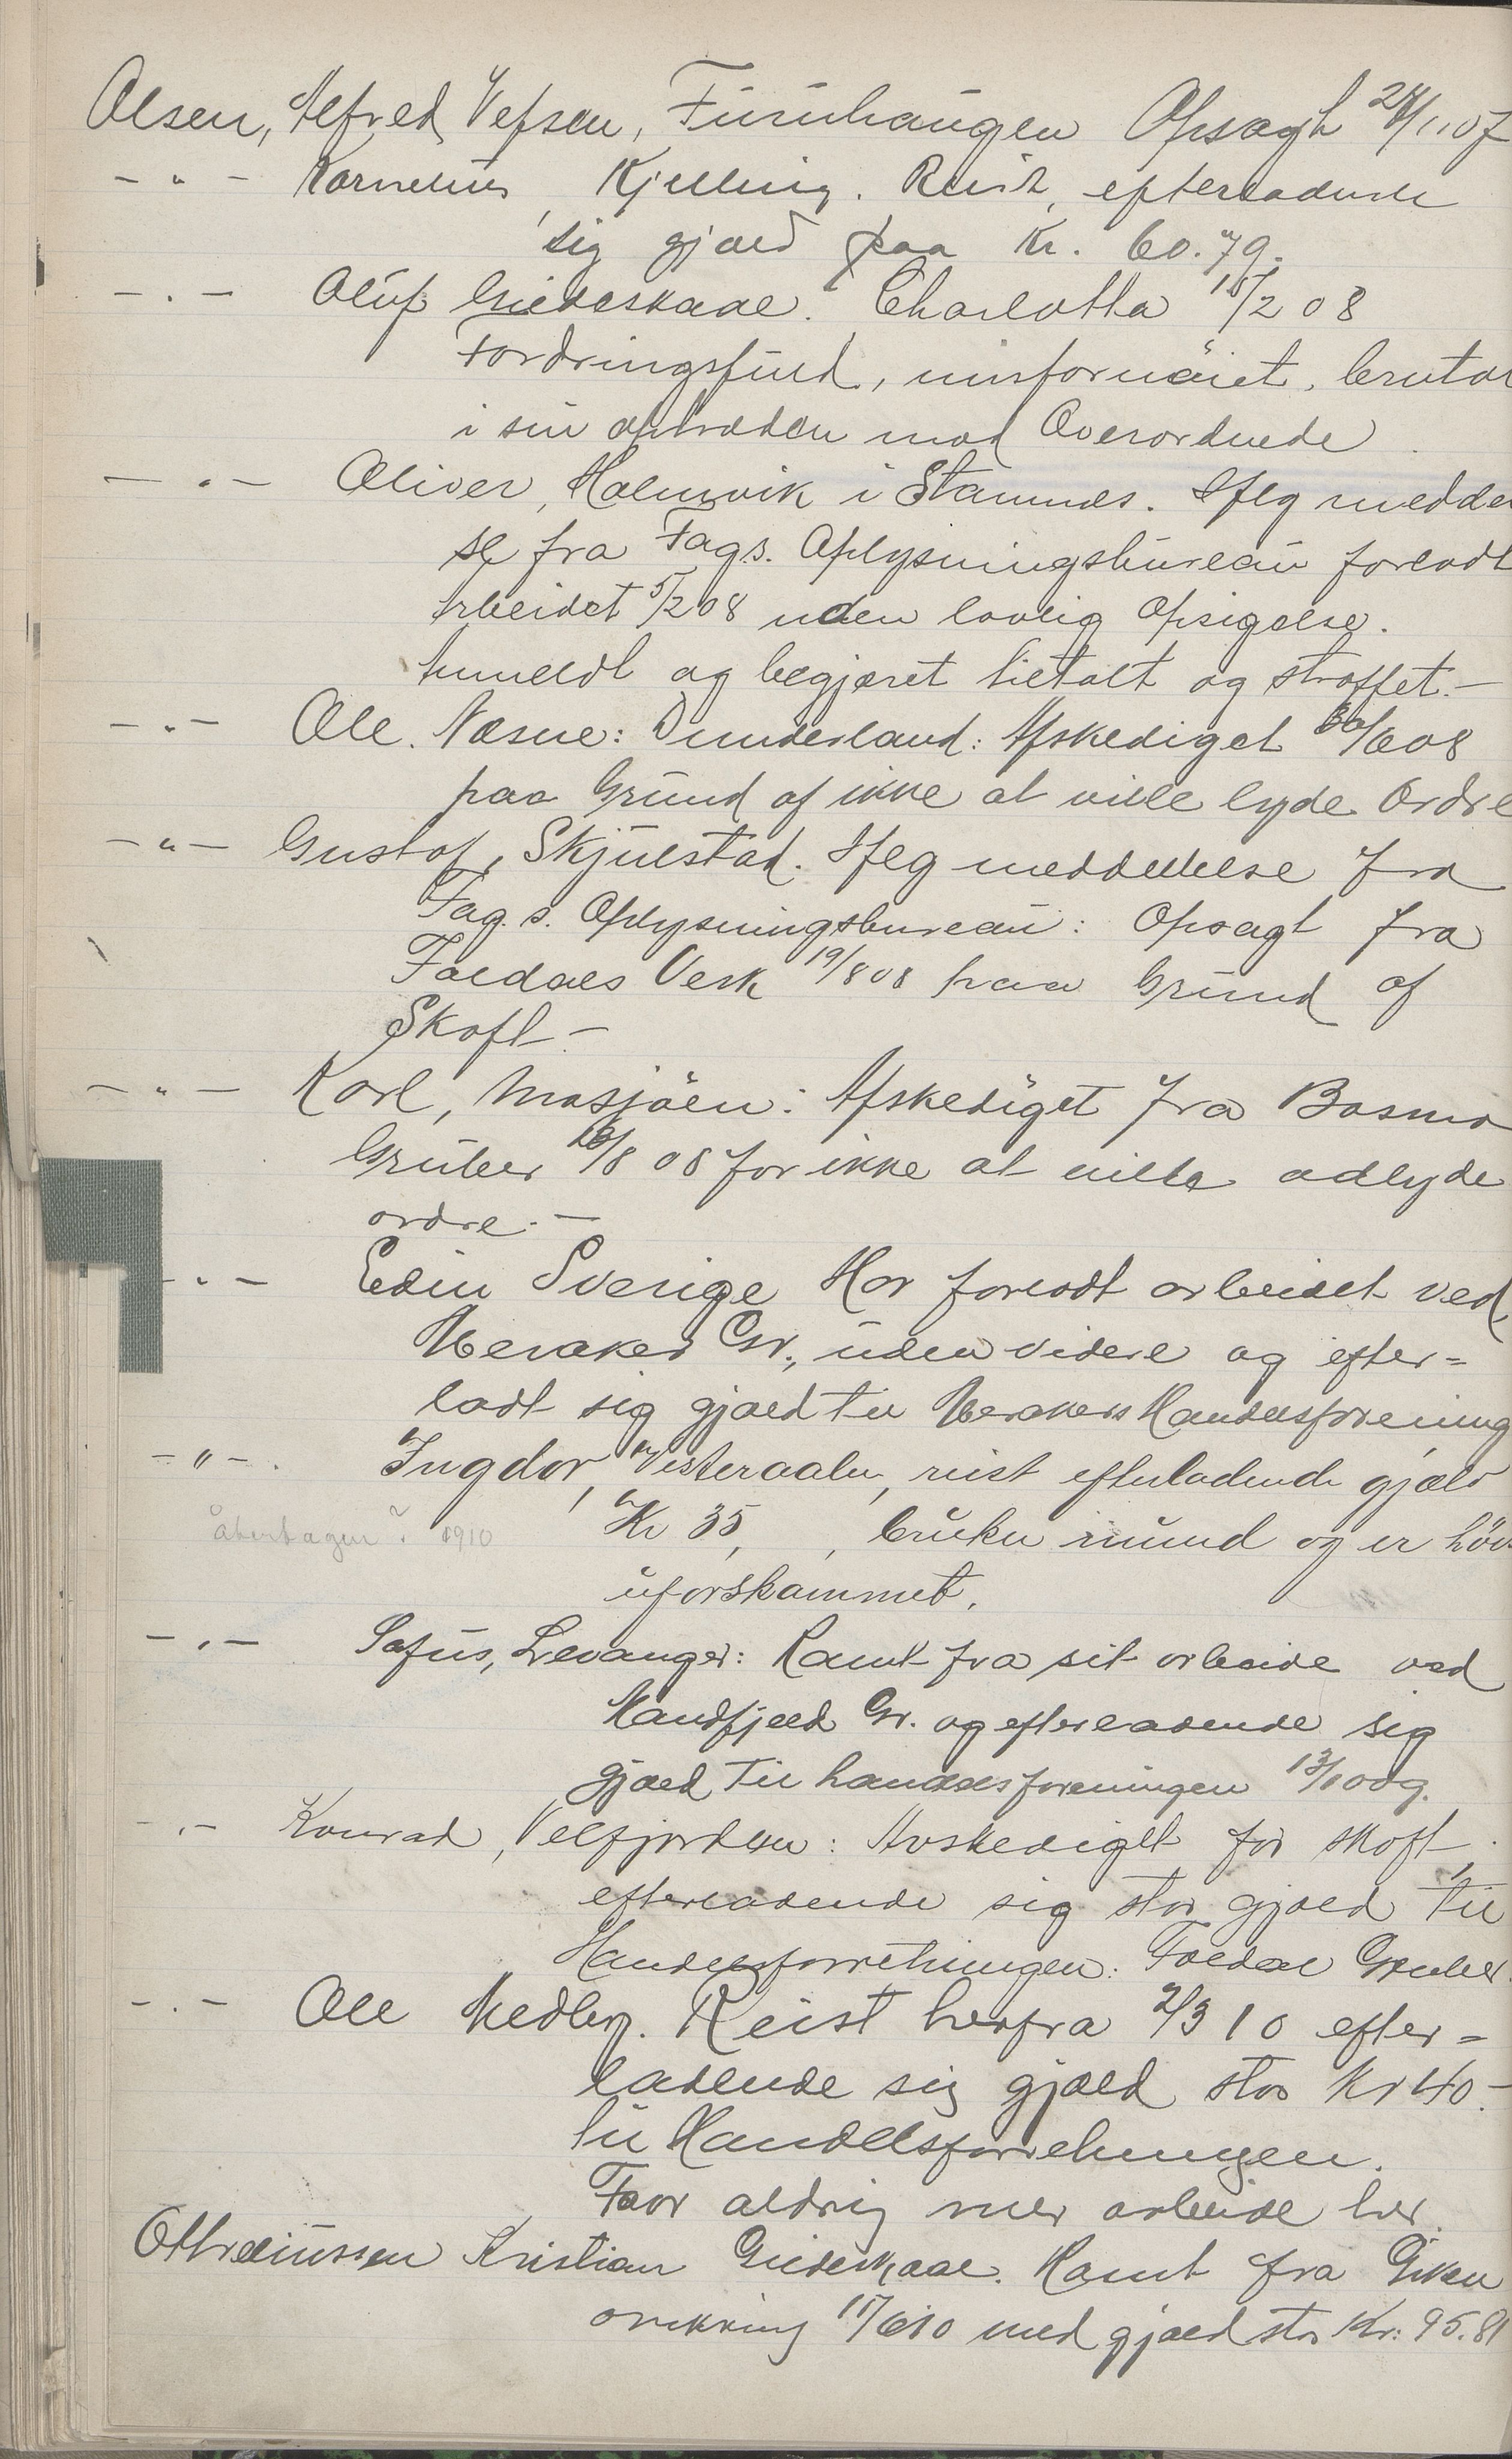 Olsen, Alfred, Vefsen, Furuhaugen Opsagt 28/1 07
- " - Kornelius, Kjelling. Reist, efterladende
sig gjæld paa Kr. 60.79.
- " - Oluf Gildeskaal. Charlotta 15/2 08
Fordringsfuld, misfornöiet, brutal
i sin optræden mod Overordnede.
- " - Oliver, Holmvik i Stamnes. Iflg meddel
se fra Fags. Oplysningsbureau forlodt
Arbeidet 5/2 08 uden lovlig Opsigelse.
Anmeldt og begjæret tiltalt og straffet. -
- " - Ole. Næsne: Dunderland: Afskediget 30/6 08
paa Grund af ikke at ville lyde Ordre
- " - Gustaf, Skjelstad. Iflg meddelelse fra
Fag.s. Oplysningsbureau: Opsagt fra
Foldals Verk 19/8 08 paa Grund af
Skoft -
- " - Karl, Mosjöen: Afskediget fra Bosmo
Gruber 18/8 08 for ikke at ville adlyde
ordre. -
- " - Edin Sverige Har forlodt arbeidet ved
Meraker Gr., uden videre og efter=
ladt sig gjæld til Merakers Handelsforening
- " - Ingdor, Vesteraalen, reist efterladende gjæld
Kr 35, bruker mund og er höist
uforskammet.
åbertagen? 1910
- " - Sofus, Levanger: Rømt fra sit arbeide ved
Mandfjeld Gr. og efterladende sig
gjæld til handelsforeningen 13/10 09.
- " - Konrad, Velfjorden: Avskediget for skoft
efterladende sig stor gjæld til
Handelsforretningen: Foldal Gruber.
- " - Ole Medby. Reist herfra 2/3 10 efter=
ladende sig gjæld stor Kr 40.-
til Handelsforretningen.
Faar aldrig mer arbeide her.
Kristian Gildeskaal. Rømt fra Giken
15/6 10 med gjæld stor Kr: 95.81